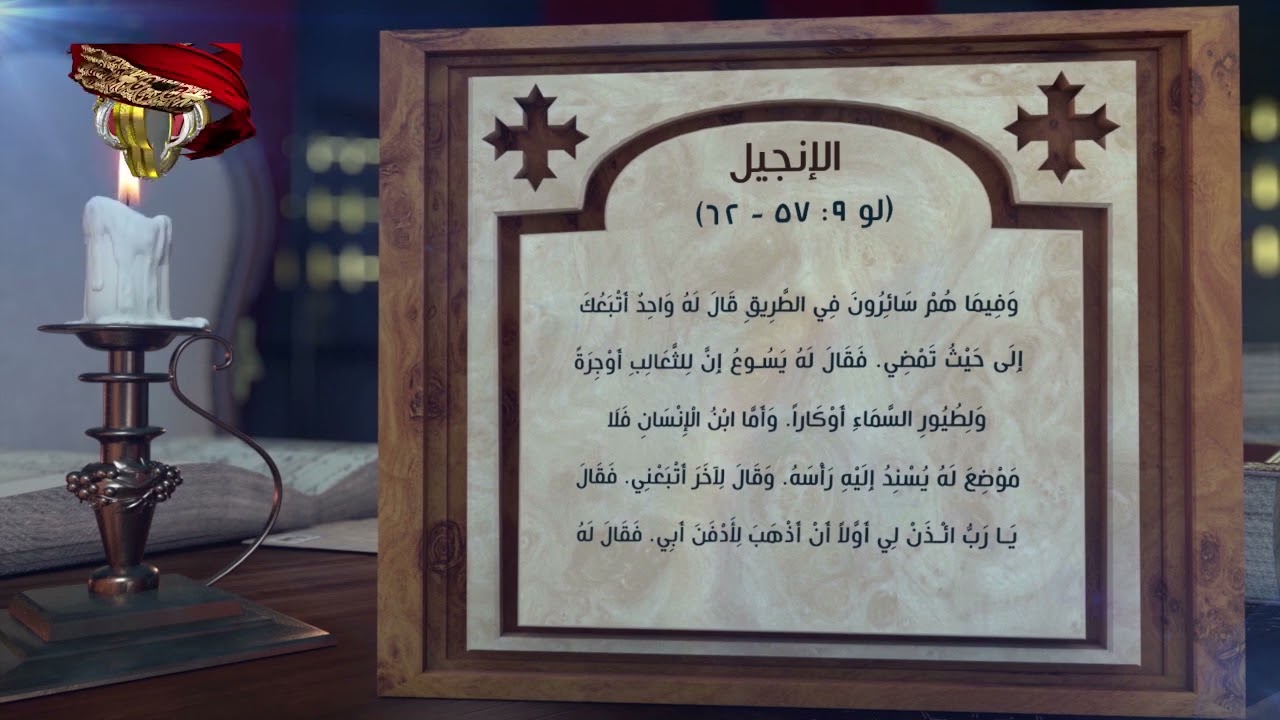 الإنجيل
(لو ٩: ٥٧ - ٦٢)
وَفِيمَا هُمْ سَائِرُونَ فِي الطَّرِيقِ قَالَ لَهُ وَاحِدٌ أَتْبَعُكَ
إلَى حَيْثُ تَمْضِي. فَقَالَ لَهُ يَسُوعُ إنَّ لِلثَّعَالِبِ أَوْجِرَةً
وَلِطُيُورِ السَّمَاءِ أَوْكَاراً. وَأَمَّا ابْنُ الْإِنْسَانِ فَلَا
مَوْضِعَ لَهُ يُسْنِدُ إلَيْهِ رَأْسَهُ. وَقَالَ لِآخَرَ أتْبَعْنِي. فَقَالَ
يَـا رَبُّ ائْـذَنْ لِي أَوَّلاً أَنْ أَذْهَبَ لِأَدْفَنَ أَبِي. فَقَالَ لَهُ